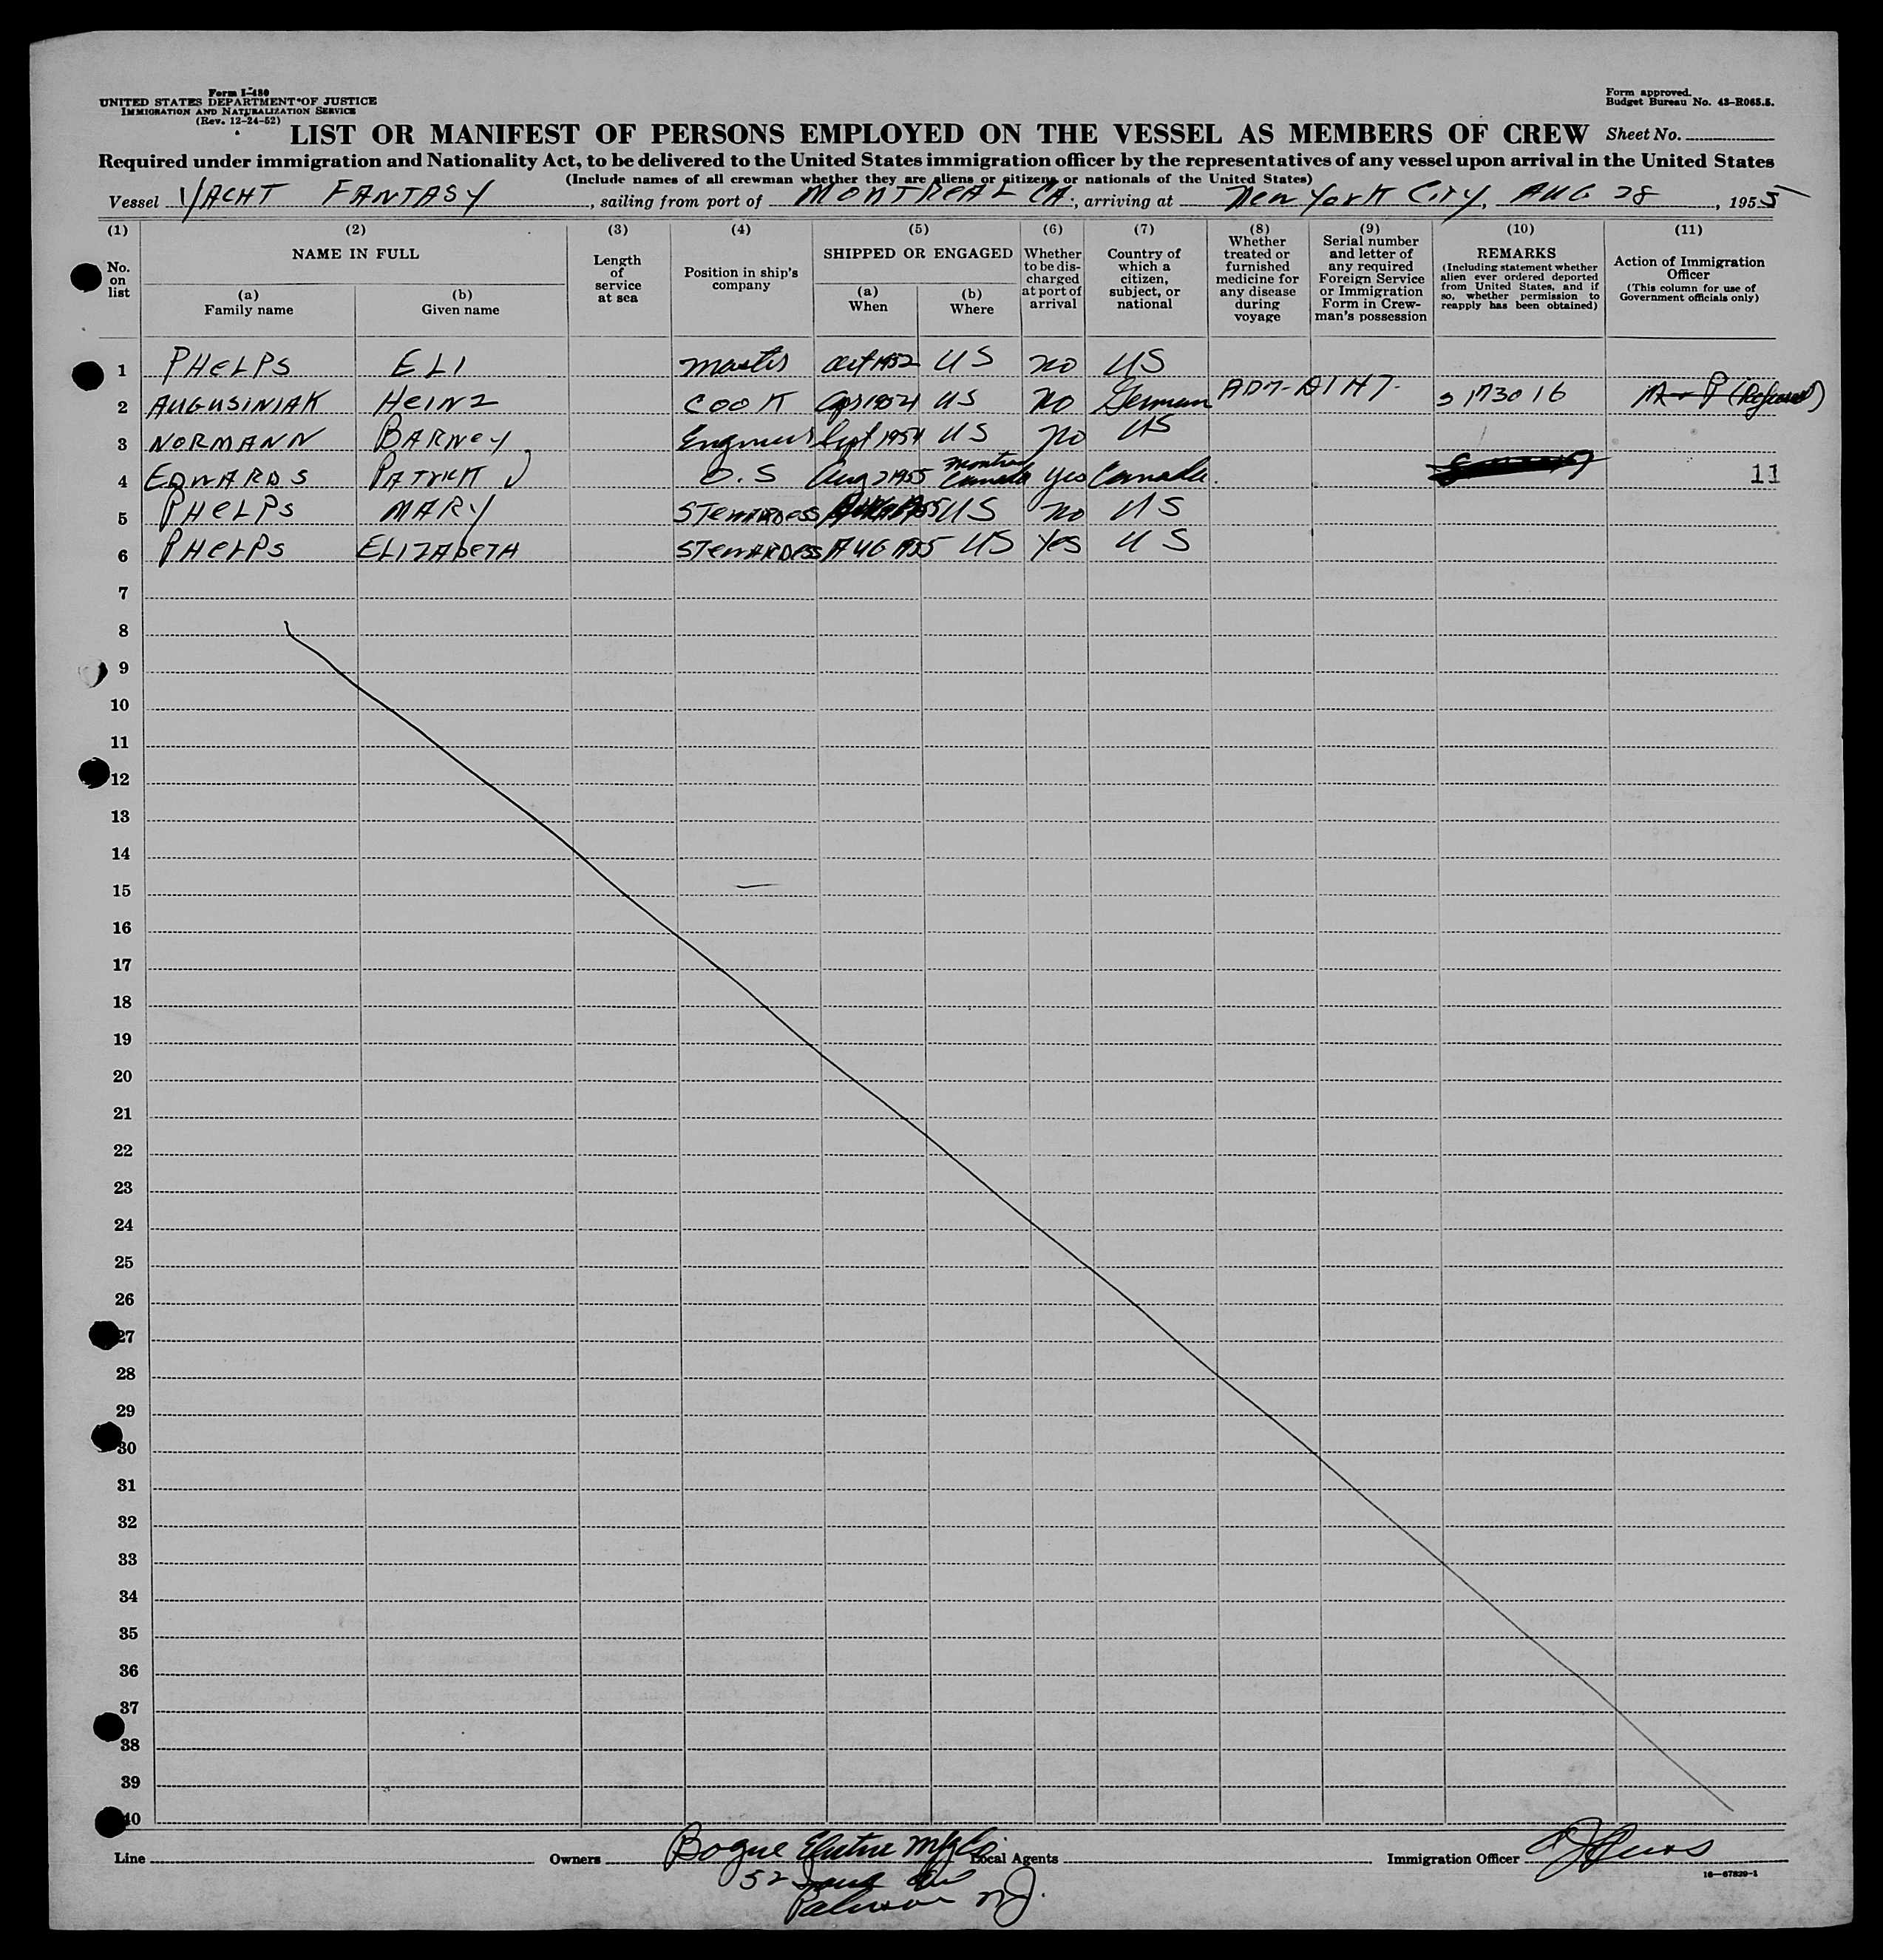 Form I-480
UNITED STATES DEPARTMENT OF JUSTICE
IMMIGRATION AND NATURALIZATION SERVICE
(Rev. 12-24-52)
Form approved.
Budget Bureau No. 43-R065.5.
LIST OR MANIFEST OF PERSONS EMPLOYED ON THE VESSEL AS MEMBERS OF CREW Sheet No.
Required under immigration and Nationality Act, to be delivered to the United States immigration officer by the representatives of any vessel upon arrival in the United States
(Include names of all crewman whether they are aliens or citizens or nationals of the United States)
Vessel YACHT FANTASY, sailing from port of MONTREAL CA., arriving at New York City, AUG 28, 1955
(1) (2) (3) (4) (5) (6) (7) (8) (9) (10) (11)
No. on list
NAME IN FULL
(a) Family name
(b) Given name
Length of service at sea
Position in ship's company
SHIPPED OR ENGAGED
(a) When
(b) Where
Whether to be discharged at port of arrival
Country of which a citizen, subject, or national
Whether treated or furnished medicine for any disease during voyage
Serial number and letter of any required Foreign Service or Immigration Form in Crewman's possession
REMARKS
(Including statement whether alien ever ordered deported from United States, and if so, whether permission to reapply has been obtained)
Action of Immigration Officer
(This column for use of Government officials only)
1 PHELPS ELI master Oct 1952 US no US
2 AUGUSINIAK HEINZ COOK Apr 1954 US No German 3173016
3 NORMANN BARNEY Engineer Sept 1954 US no US
4 EDWARDS PATRICK J O.S Aug 2 1955 Montreal Canada yes Canada. 11
5 PHELPS MARY STEWARDESS US no US
6 PHELPS ELIZABETH STEWARDESS AUG 1955 US Yes US
7
8
9
10
11
12
13
14
15
16
17
18
19
20
21
22
23
24
25
26
27
28
29
30
31
32
33
34
35
36
37
38
39
40
Line Owners Bogue Electric Mfg Co. Local Agents Immigration Officer
52 Ave
Paterson NJ.
16—67820-1